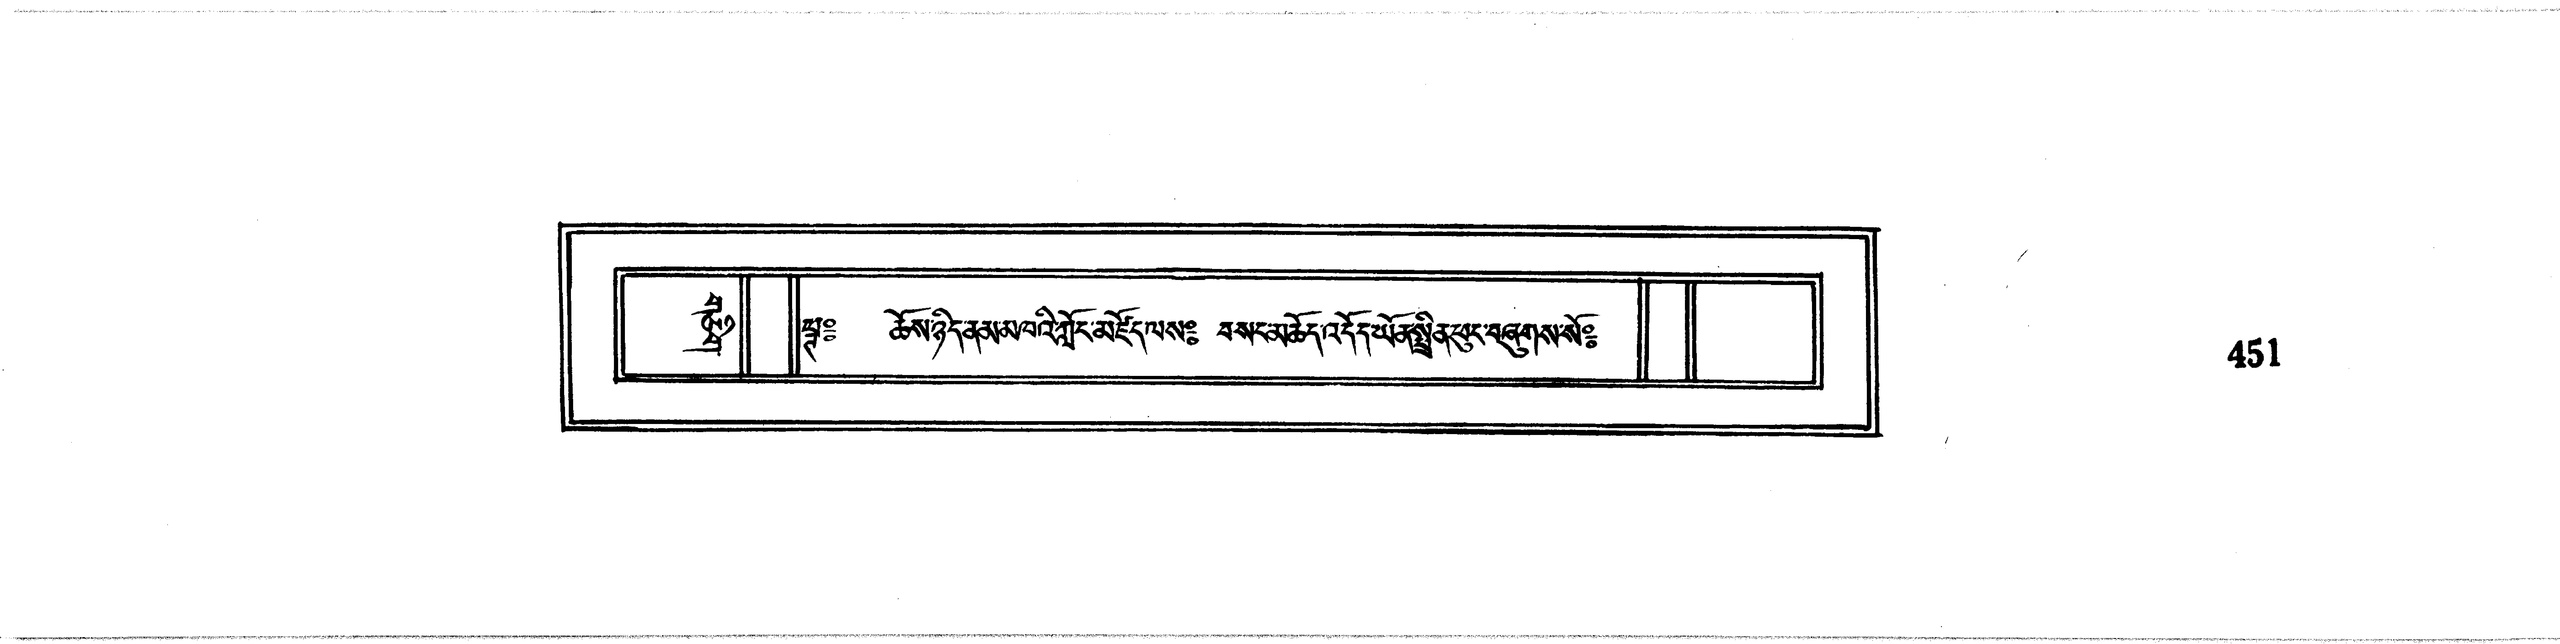 ཆོས་ཉིད་ནམ་མཁའི་ཀློང་མཛོད་ལས༔ བསང་མཆོད་འདོད་ཡོན་སྤྲིན་ཕུང་བཞུགས་སོ༔
451